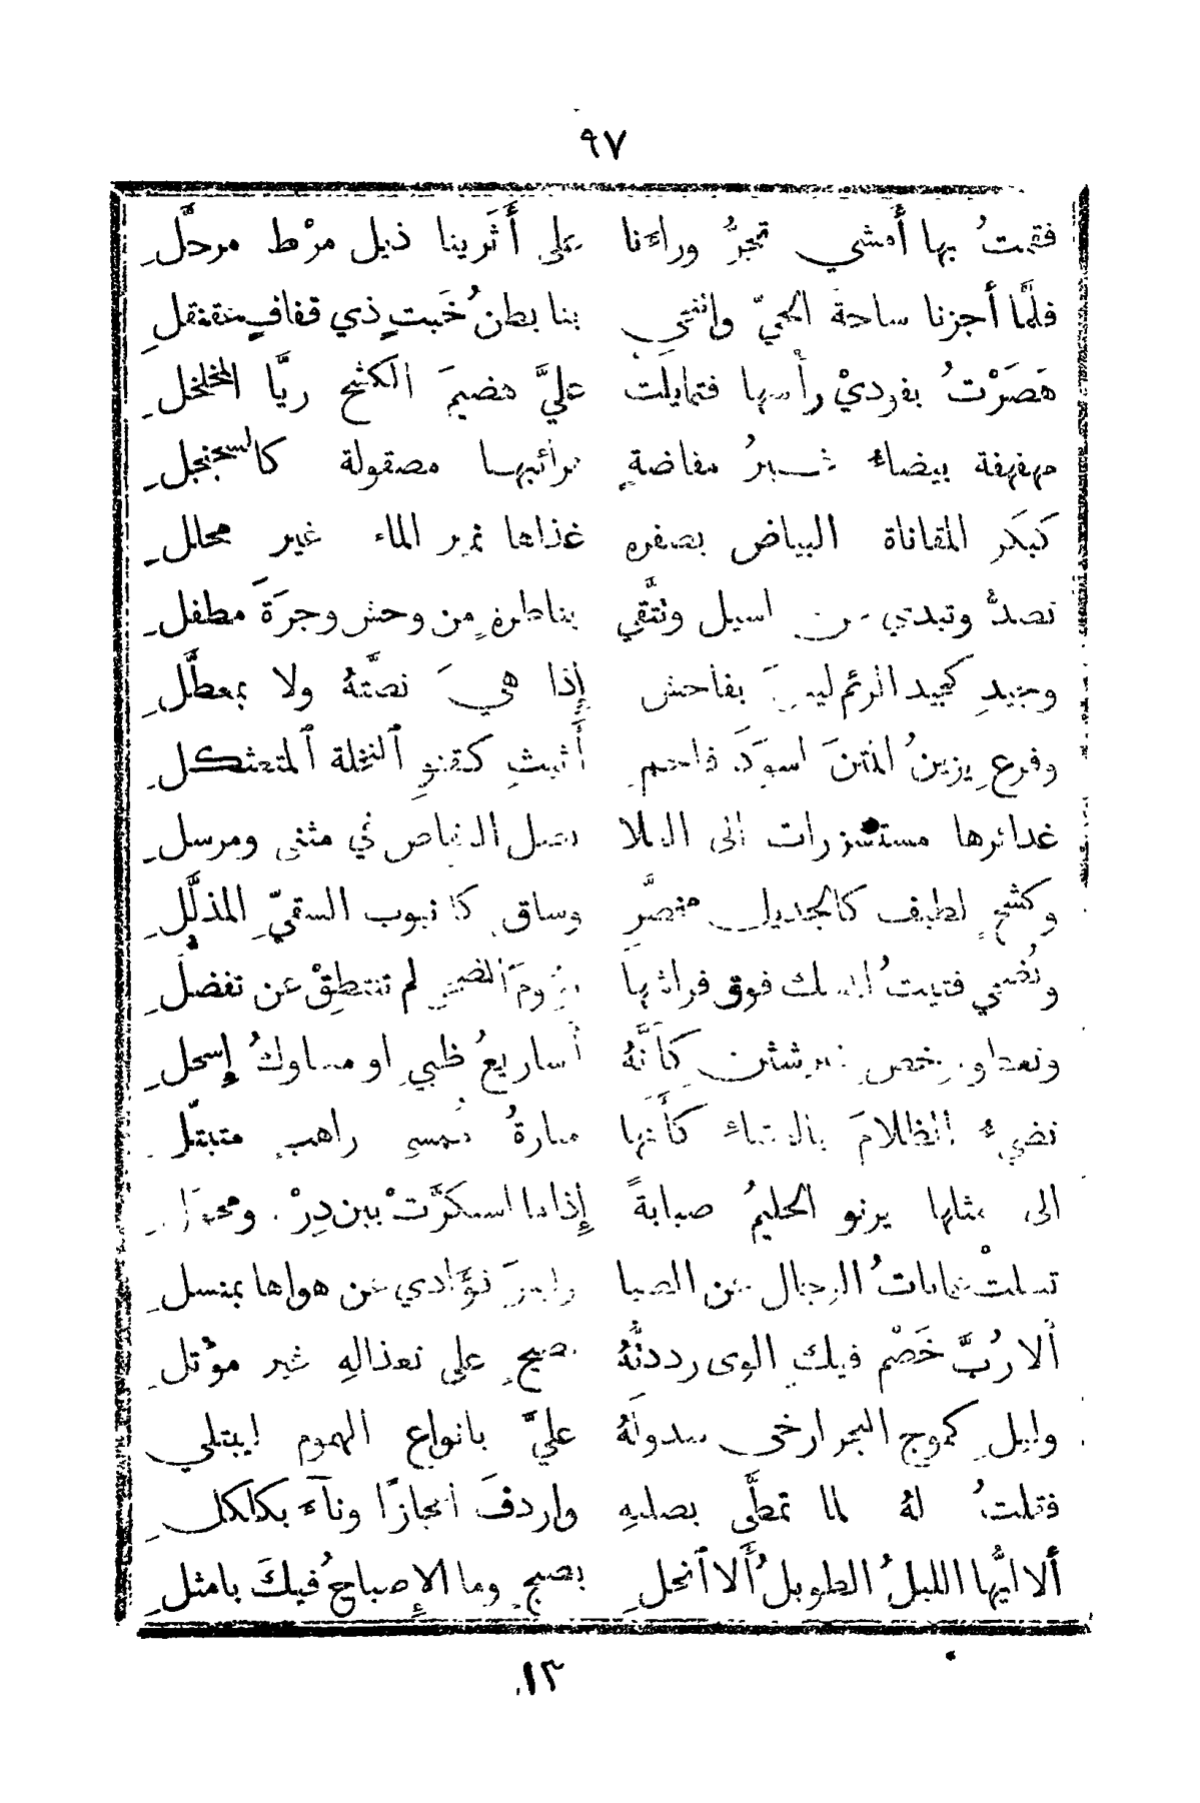 ٩٧
فقمتُ بها أَمشي تجرُّ وراءَنا على أَثَرينا ذيل مرْط مرحَّلِ
فلمَّا أجزنا ساحة الحيّ وانتحى بنا بطنُ خَبتٍ ذي قفافٍ عقنقلِ
هَصَرْتُ بفوديْ رأْسها فتمايلت عليَّ هضيمَ الكشح ريَّا المخلخلِ
مهفهفة بيضاء غيرُ مفاضةٍ ترائبها مصقولة كالسجنجلِ
كبَكر المقاناة البياض بصفره غذاها نمير الماء غير محللِ
تصدُّ وتبدي عن اسيل ونتَّقي بناظرةٍ من وحش وجرَةَ مطفلِ
وجيدِ كجيد الرئم ليسَ بفاحش إِذا هيَ نصَّتهُ ولا بمعطَّلِ
وفرعِ يزينُ المتنَ اسوَدَ فاحم أَثيثِ كقنوِ ٱلنخلة ٱلمتعثكلِ
غدائرها مستشزرات الى العلا تضل العقاص في مثنى ومرسلِ
وكشحٍ لطيف كالجديل مخصَّرِ وساق كانبوب السقيّ المذلَّلِ
وتُضحي فتيتُ المسك فوق فراشها نؤومَ ٱلضحى لم تنتطِقْ عن تفضلُِ
وتعطو برخصِ غير شثن كأَنَّهُ أَساريعُ ظبيِ او مساويكُ إِسحلِ
تضيءُ الظلامَ بالعشاءِ كأَنها منارةُ مُمسى راهبِ متبتّل
الى مثلها يرنو الحليمُ صبابةً إِذا ما اسبكرَّتْ بين دِرْع ومجوَلِ
تسلتْ عماياتُ الرجال عن الصبا وليسَ فؤَادي عن هواها بمنسلِ
أَلا رُبَّ خَصْم فيكِ الوى رددتُّهُ نصيحِ على تعذالهِ غير مؤْتلِ
وليلِ كموج البحر ارخى سدولَهُ عليَّ بانواع الهموم ليبتلي
فقلتُ لهُ لما تمطَّى بصلبهِ واردفَ اعجازًا وناءَ بكلكلِ
ألا ايُّها الليلُ الطويلُ أَلا ٱنجلِ بصبحِ وما الإِصباحُ فيكَ بامثلِ
١٣